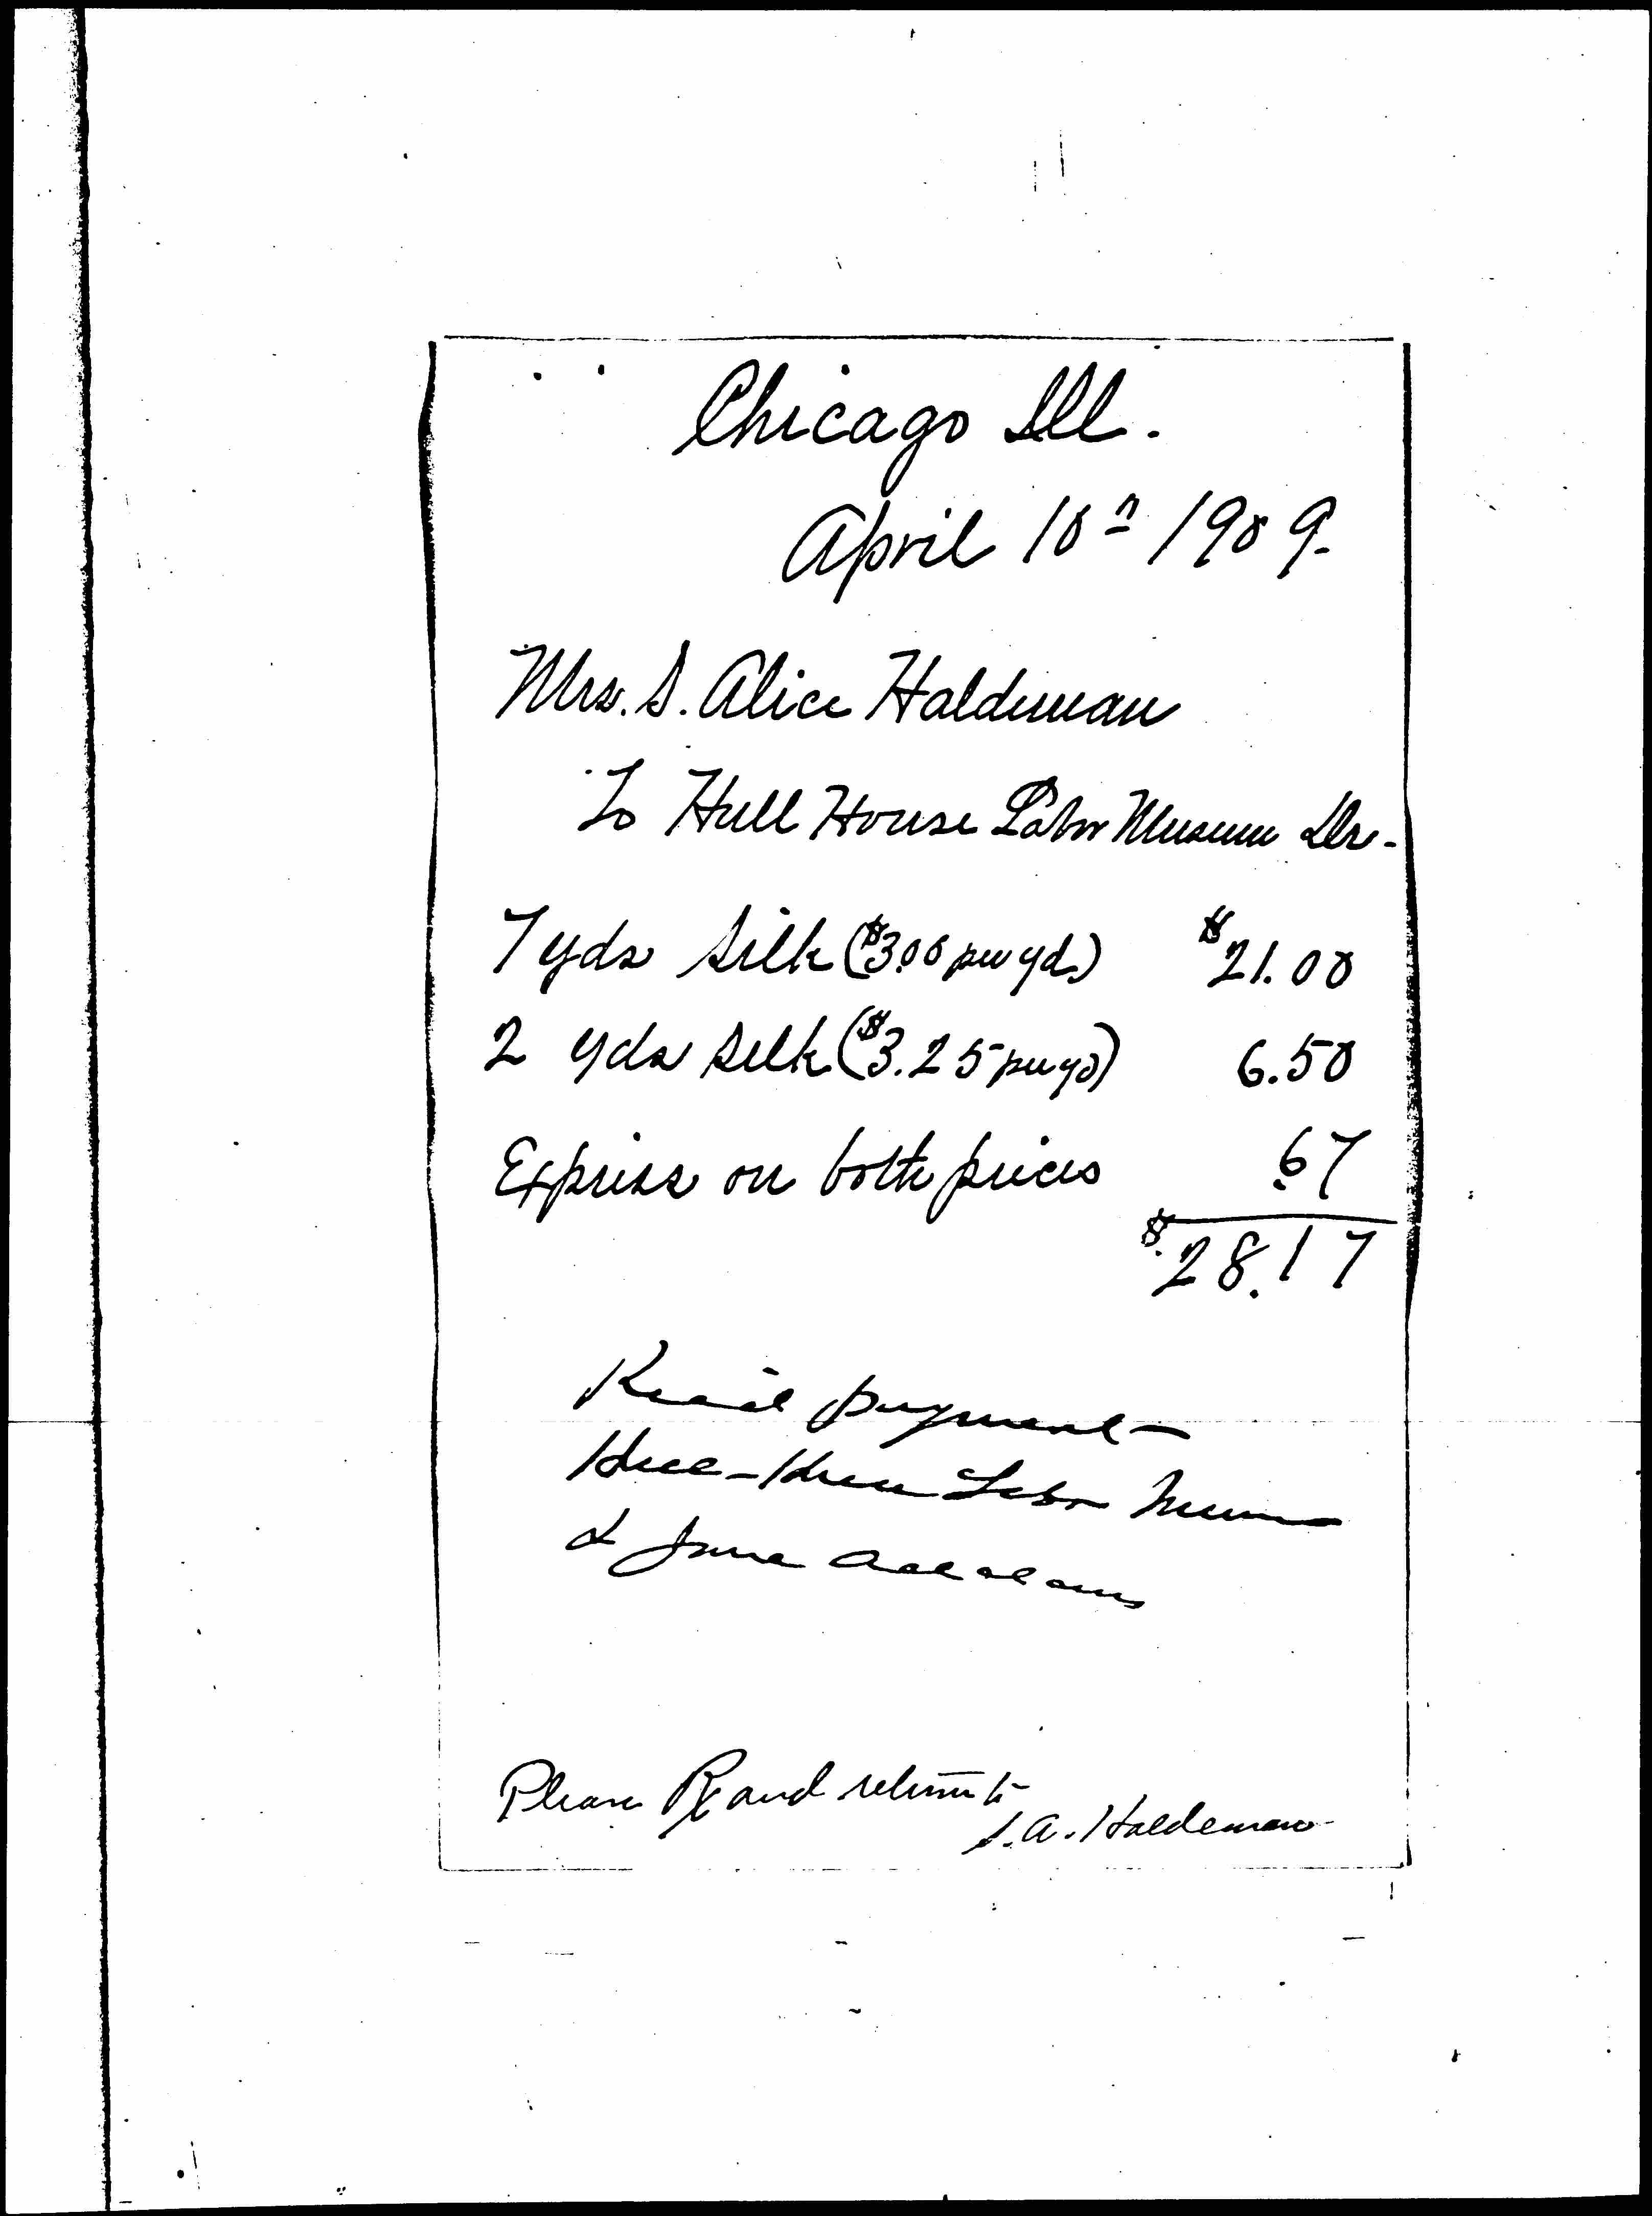 Chicago Ill.
April 10th 1909.
Mrs. S. Alice Haldeman
To Hull House Labor Museum Dr.
7 yds silk ($3.00 per yd.) $21.00
2 yds silk ($3.25 per yd) 6.50
Express on both pieces .67
$28.17
Rec'd payment
Hull-House Labor Museum
Jane Addams
Please Rx and return to
S.A. Haldeman